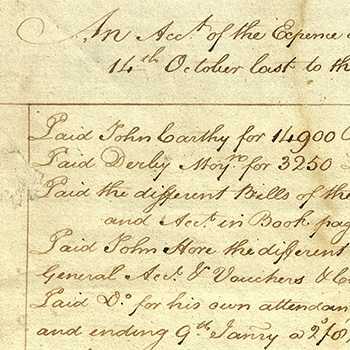 An Acct. of the Expence
14th October last to the
Paid John Carthy for 14900
Paid Derby Moyn.o for 3250
Paid the different Bills of the
and Acct. in Book pag
Paid John Hore the different
General Acct. & Vouchers &
Paid Do. for his own attendan
and ending 9th Janry a 2s/8